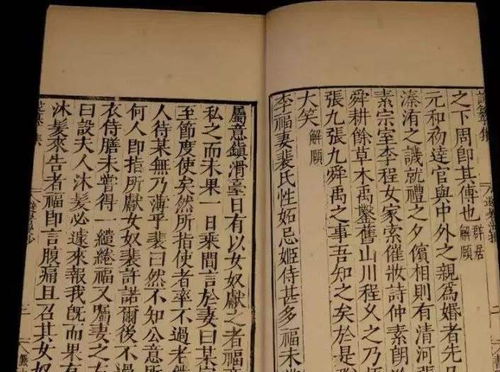 之下周郎其傅也 群居解頤
元和初達官與中外之親為婚者先
溱洧之譏就禮之夕儐相則有清河張
素宗室李程女家索催妝詩仲素朗
舜耕餘草木禹鑿舊山川程久之乃
張九張九舜禹之事吾知之矣於是
大笑 解頤
李福妻裴氏性妬忌姬侍甚多福未
屬意鎮滑臺日有以女奴獻之者福
私之而未果一日乘間言於妻曰某官
至節度使矣然所指使者率不過老
人待某無乃薄乎裴曰然不知公意所
何人即指所獻女奴裴許諾爾後不過
衣侍膳未嘗得一繾綣福又囑妻之
曰設夫人沐髮必遽來報我既而果有
沐髮來告者福即言腹痛且召其女奴